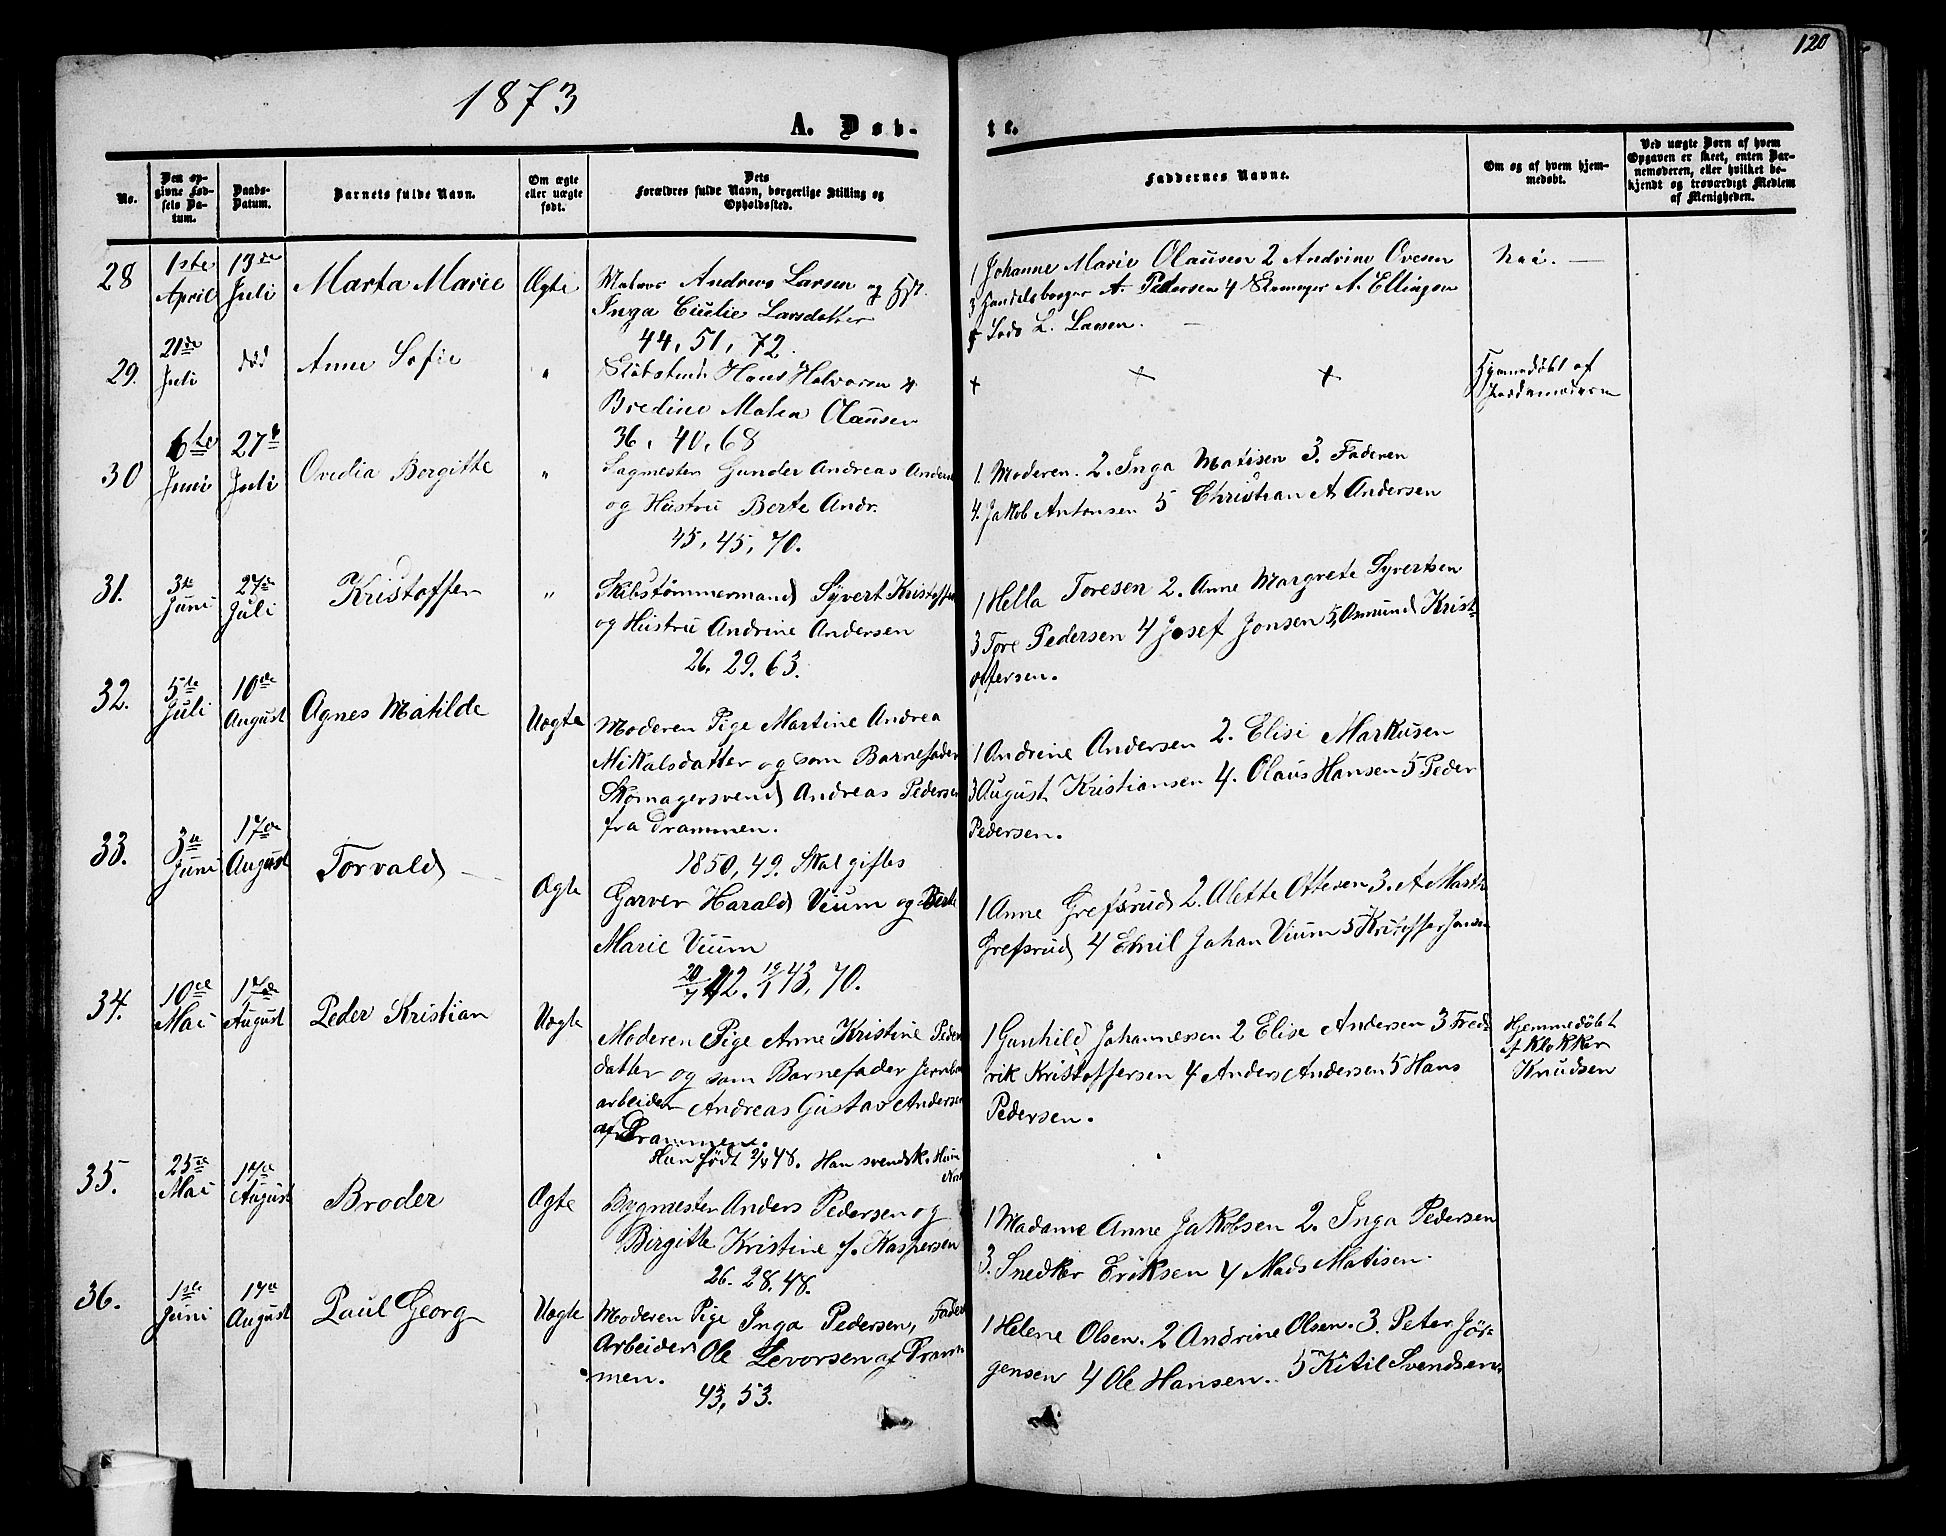 120
1873
A. Døb-
te.
No.
Den op-
givne Fød-
sels Da-
tum.
Daabs-
Datum.
Barnets fulde Navn.
Om ægte
eller uægte
født.
Dets
Forældres fulde Navn, borgerlige Stilling og
Opholdssted.
Faddernes Navne.
Om og af hvem hjem-
medøbt.
Ved uægte Børn af hvem
Opgaven er skeet, enten Bar-
nemoderen, eller hvilket be-
kjendt og troværdigt Medlem
af Menigheden.
28
1ste
April
13de
Juli
Marta Marie
Ægte
Andreas Larsen og Hst.
Inga Cecilie Larsdatter
44, 51, 72.
1 Johanne Marie Olausen 2 Andrine Ovesen
3 Handelsborger A. Pedersen 4 Skomager A. Ellingsen
5 Lods L. Larsen.
Nei.
29.
21de
Juli
død
Anne Sofie
"
Hans Halvorsen og
Bredine Malea Olausen
36, 40, 68
+ + +
Hjemmedøbt af
Jordemoderen
30
6te
Juni
27de
Juli
Ovedia Borgitte
"
Sagmester Gunder Andreas Anders
og Hustru Berte Andr.
45, 45, 70.
1. Moderen. 2. Inga Matisen 3. Faderen
4. Jakob Antonsen 5 Christian A Andersen
31.
3de
Juni
27de
Juli
Kristoffer
"
Skibstømmermand Syvert Kristoffers
og Hustru Andrine Andersen
26. 29. 63.
1 Hella Toresen 2. Anne Margrete Syvertsen
3 Tore Pedersen 4 Josef Jonsen 5, Osmund Krist-
offersen.
32.
5te
Juli
10de
August
Agnes Matilde
Uægte
Moderen Pige Martine Andrea
Mikalsdatter og som Barnefader
Skomagersvend Andreas Pedersen
fra Drammen.
1850, 49. Skal giftes
1 Andrine Andersen 2. Elisi Markusen
3 August Kristiansen 4. Olaus Hansen 5 Peder
Pedersen.
33.
3de
Juni
17de
August
Torvald
Ægte
Garver Harald Vium og Berte
Marie Vium
20/7 42. 19/1 43, 70.
1 Anne Grefsrud 2. Alette Ottesen 3. A Marth
Grefsrud 4 Emil Johan Vium 5 Kristoffer Jansen
34.
10de
Mai
17de
August
Peder Kristian
Uægte
Moderen Pige Anne Kristine Peders
datter og som Barnefader Jernba
arbeider Andreas Gustav Andersen
af Drammen.
Hun født 2/4 48. Han svensk. Hun
Norsk
1 Gunhild Johannessen 2 Elise Andersen 3 Fred-
rik Kristoffersen 4 Anders Andersen 5 Hans
Pedersen.
Hjemmedøbt
af Klokker
Knudsen
35.
25de
Mai
17de
August
Broder
Ægte
Bygmester Anders Pedersen og
Birgitte Kristine f. Kaspersen
26. 28. 48.
1 Madame Anne Jakobsen 2. Inga Pedersen
3. Snedker Eriksen 4 Mads Matisen.
36.
1ste
Juni
17de
August
Paul Georg
Uægte
Moderen Pige Inga Pedersen, Fader
Arbeider Ole Levorsen af Dram-
men.
43, 53.
1 Helene Olsen. 2 Andrine Olsen. 3. Peter Jør-
gensen 4 Ole Hansen. 5 Kitil Svendsen.